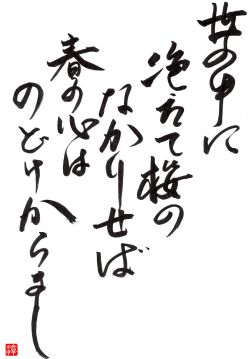 世の中に
絶えて桜の
なかりせば
春の心は
のどけからまし